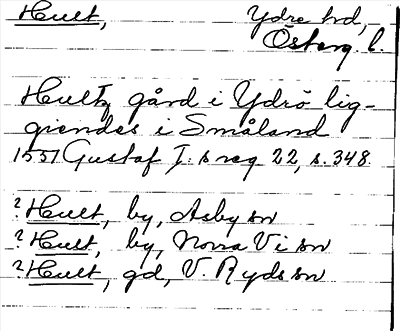 Hult, Ydre hd,
Österg. l.
Hultz gård i Ydrö lig-
giendes i Småland
1551 Gustaf I:s reg 22, s. 348
? Hult, by, Asby sn
? Hult, by, Norra Vi sn
? Hult, gd, V. Ryds sn